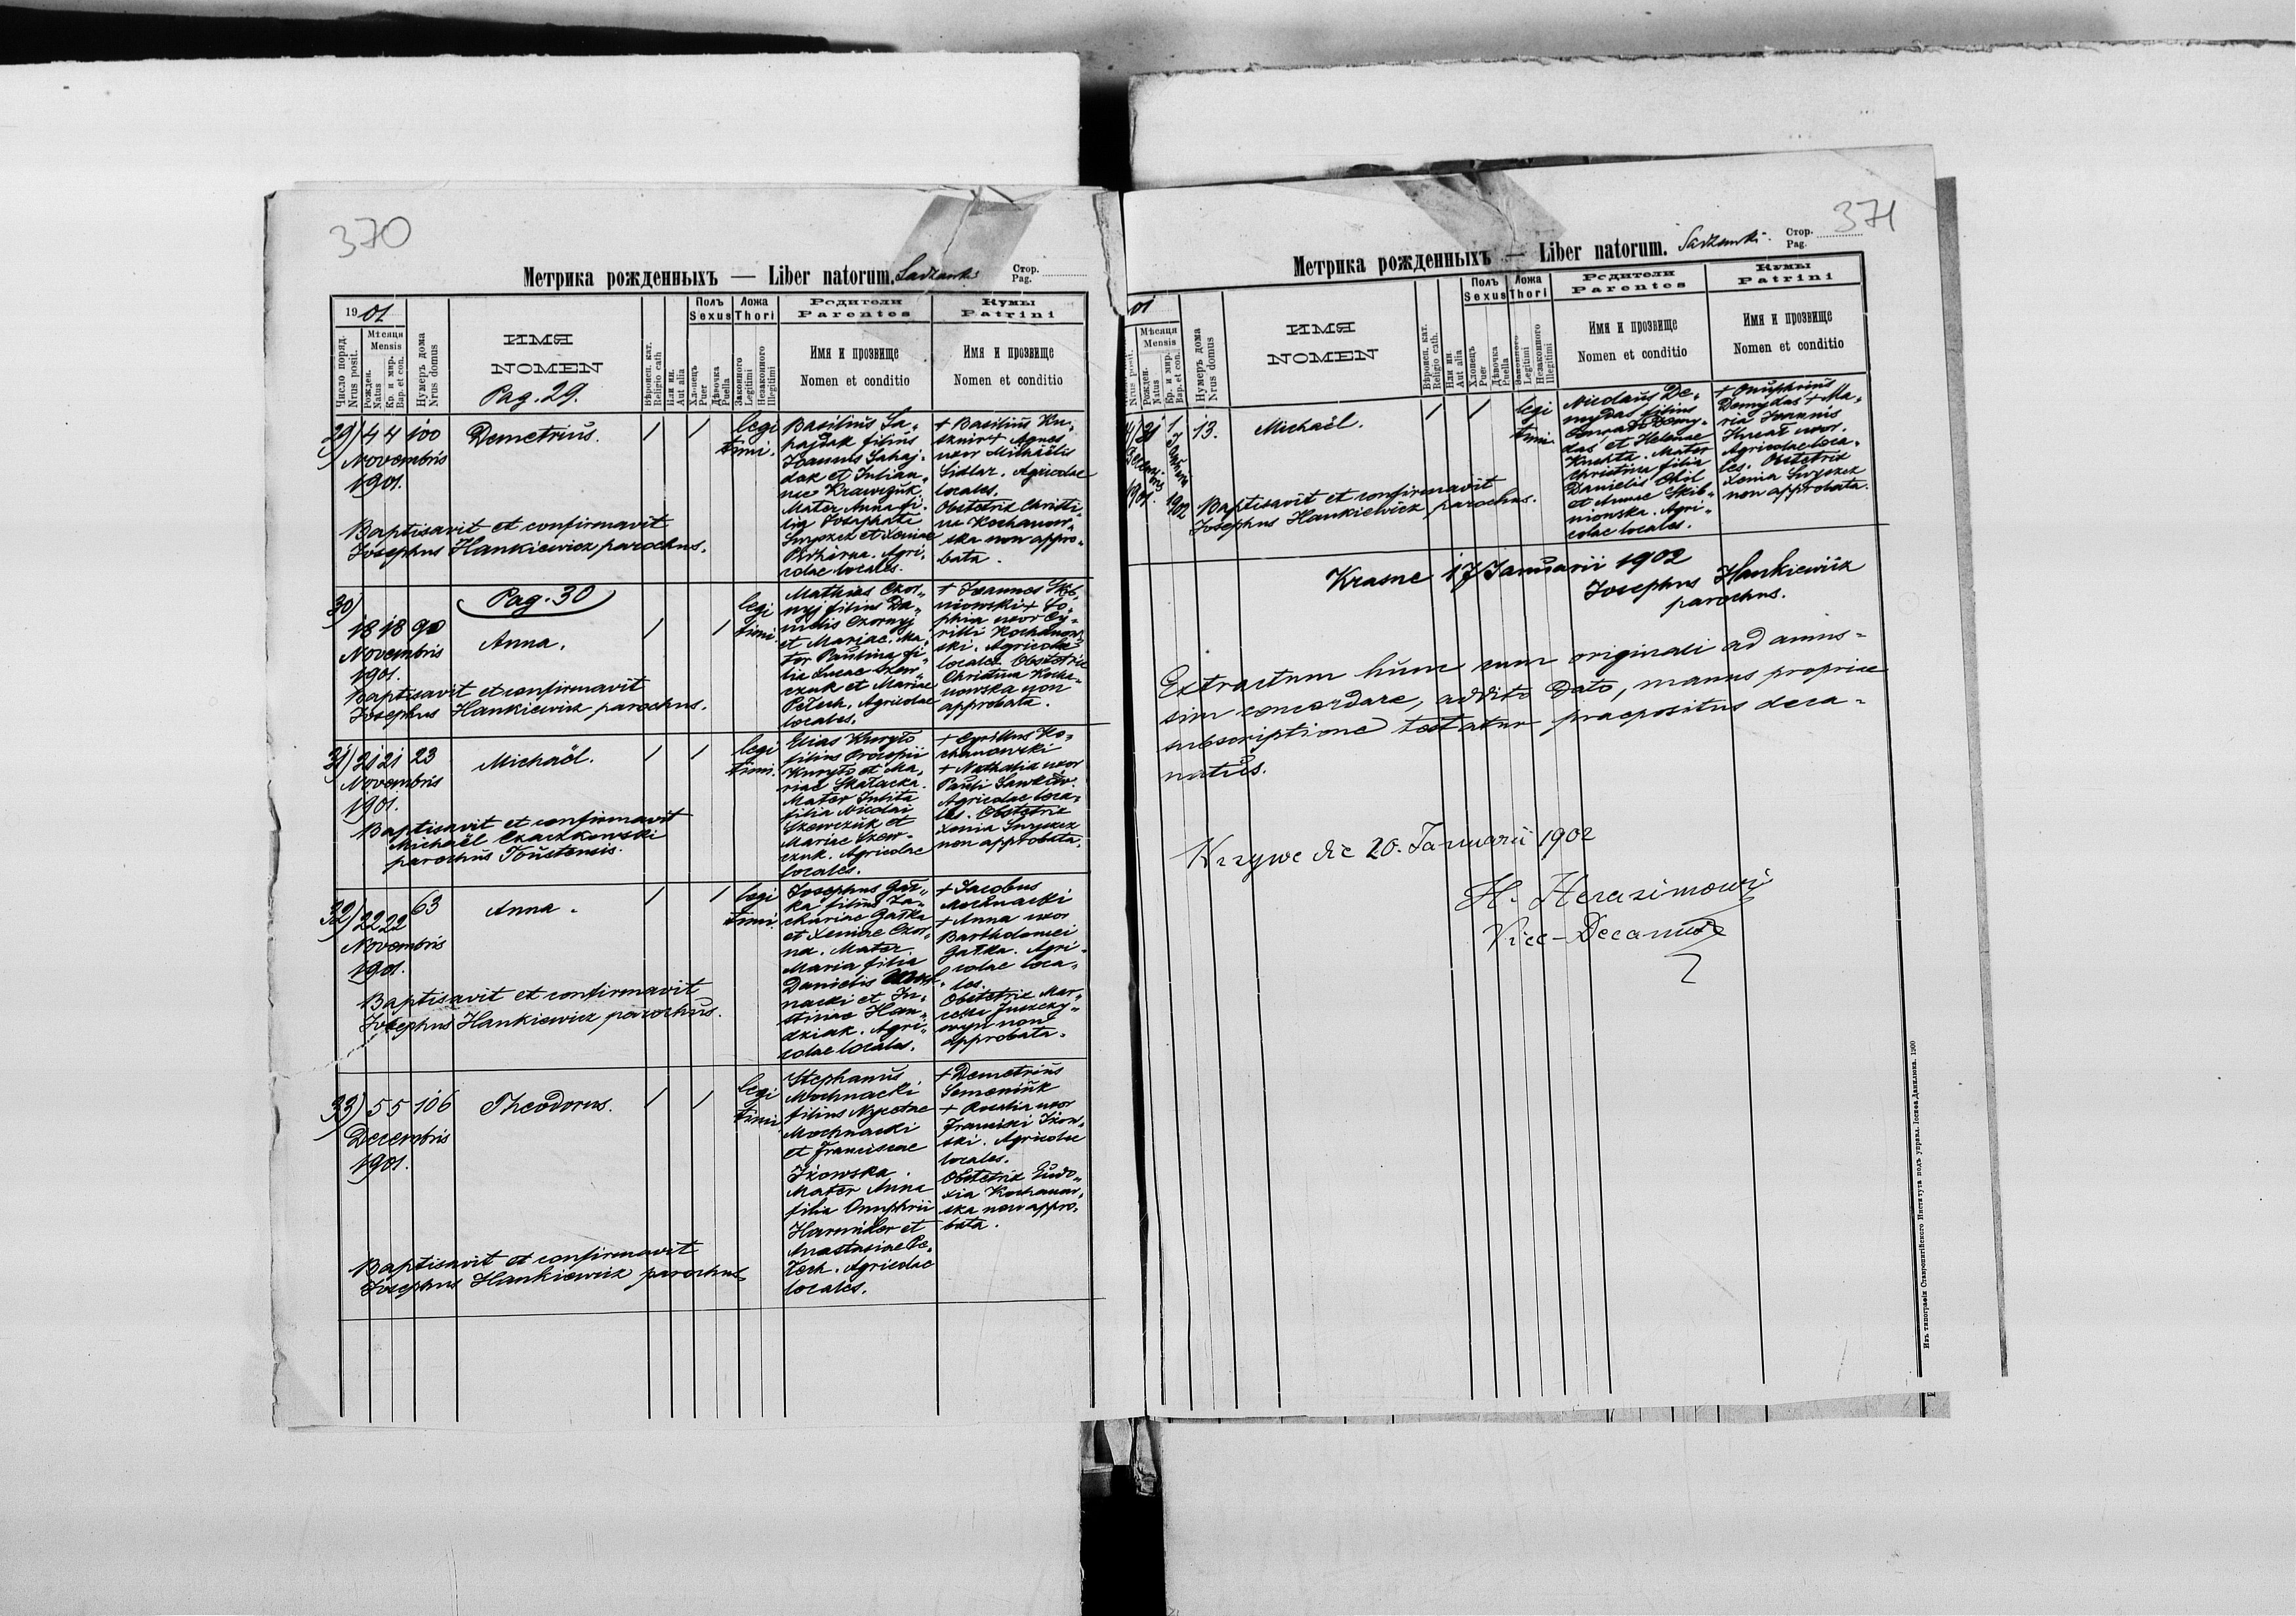 370
Метрика рожденныхъ — Liber natorum. Sadzawki Стор. Pag.
1901
Число поряд. Nrus posit.
Мѣсяця Mensis
Рожден. Natus
Кр. и мир. Bap. et con.
Нумеръ дома Nrus domus
ИМЯ
NOMEN
Pag. 29.
Вѣроисп. кат. Religio cath
Или ин. Aut alia
Полъ Sexus
Хлопецъ Puer
Дѣвочка Puella
Ложа Thori
Законного Legitimi
Незаконного Illegitimi
Родители
Parentes
Имя и прозвище
Nomen et conditio
Кумы
Patrini
Имя и прозвище
Nomen et conditio
29) 4 4 100 Demetrius. / / legi
timi.
Novembris
1901.
Baptisavit et confirmavit
Josephus Hankiewicz parochus.
Basilius Sa-
hajdak filius
Joannis Sahaj-
dak et Julian-
nae Krawczuk.
Mater Anna fi-
lia Josaphati
Smyczek et Xeniae
Agri-
colae locales.
+ Basilius Ku-
sznir + Agnes
uxor Michaëlis
Agricolae
locales.
Obstetrix Christi-
na Kochanow-
ska non appro-
bata.
Pag. 30
30) 18 18 90 Anna. / / legi
timi.
Novembris
1901.
Baptisavit et confirmavit
Josephus Hankiewicz parochus.
Mathias Czor-
nyj filius Da-
nielis Czornyj
et Mariae. Ma-
ter Paulina fi-
lia Lucae Szew-
czuk et Mariae
Petech. Agricolae
locales.
+ Joannes Skib-
niowski + So-
phia uxor Cy-
rilli Kochanow-
ski. Agricolae
locales. Obstetrix
Christina Kocha-
nowska non
approbata.
31) 21 21 23 Michaël. / / legi
timi.
Novembris
1901.
Baptisavit et confirmavit
Michaël Czaczkowski
parochus Toustensis.
Elias Kuryło
filius Procopii
Kuryło et Ma-
riae Skałacka.
Mater Julita
filia Nicolai
Szewczuk et
Mariae Szew-
czuk. Agricolae
locales.
+ Cyrillus Ko-
chanowski
+ Nathalia uxor
Pauli
Agricolae loca-
les. Obstetrix
Xenia Smyczek
non approbata.
32) 22 22 63 Anna. / / legi
timi.
Novembris
1901.
Baptisavit et confirmavit
Josephus Hankiewicz parochus.
Josephus Gał-
ka filius Za-
chariae Gałka
et Xeniae Czor-
na. Mater
Maria filia
Danielis Moch-
nacki et Ju-
stinae Han-
dziak. Agri-
colae locales.
+ Jacobus
Mochnacki
+ Anna uxor
Bartholomei
Gałka. Agri-
colae loca-
les.
Obstetrix Mar-
cella
non
approbata.
33) 5 5 106 Theodorus. / / legi
timi.
Decembris
1901.
Baptisavit et confirmavit
Josephus Hankiewicz parochus
Stephanus
Mochnacki
filius Nycetae
Mochnacki
et Franciscae
Iżowska.
Mater Anna
filia Onuphrii
et
Anastasiae Pe-
tech. Agricolae
locales.
+ Demetrius
Semeniuk
+ Rosalia uxor
Francisci Iżow-
ski. Agricolae
locales.
Obstetrix Eudo-
xia Kochanow-
ska non appro-
bata.
371
Метрика рожденныхъ — Liber natorum. Sadzawki. Стор. Pag.
01
Nrus posit.
Мѣсяця Mensis
Рожден. Natus
Кр. и мир. Bap. et con.
Нумеръ дома Nrus domus
ИМЯ
NOMEN
Вѣроисп. кат. Religio cath.
Или ин Aut alia
Полъ Sexus
Хлопецъ Puer
Дѣвочка Puella
Ложа Thori
Законного Legitimi
Незаконного Illegitimi
Родители
Parentes
Имя и прозвище
Nomen et conditio
Кумы
Patrini
Имя и прозвище
Nomen et conditio
31 1 13. Michaël. / / legi
timi.
1901. 1902
Baptisavit et confirmavit
Josephus Hankiewicz parochus.
Nicolaus De-
mydas filius
Demy-
das et Helenae
Kuchta. Mater
Christina filia
Danielis
et Annae Skib-
niowska. Agri-
colae locales.
+ Onuphrius
Demydas + Ma-
ria Joannis
uxor.
Agricolae loca-
les. Obstetrix
Xenia Smyczek
non approbata.
Krasne 17 Januarii 1902
Josephus Hankiewicz
parochus.
Extractum hunc cum originali ad amus-
sim concordare, addito dato, manus propriae
subscriptione testatur praepositus deca-
natus.
Krzywe die 20. Januarii 1902
H. Herasimowicz
Vice-Decanus
Изъ типографіи Ставропигійского Института подъ управл. Іосифа Данилюка. 1900